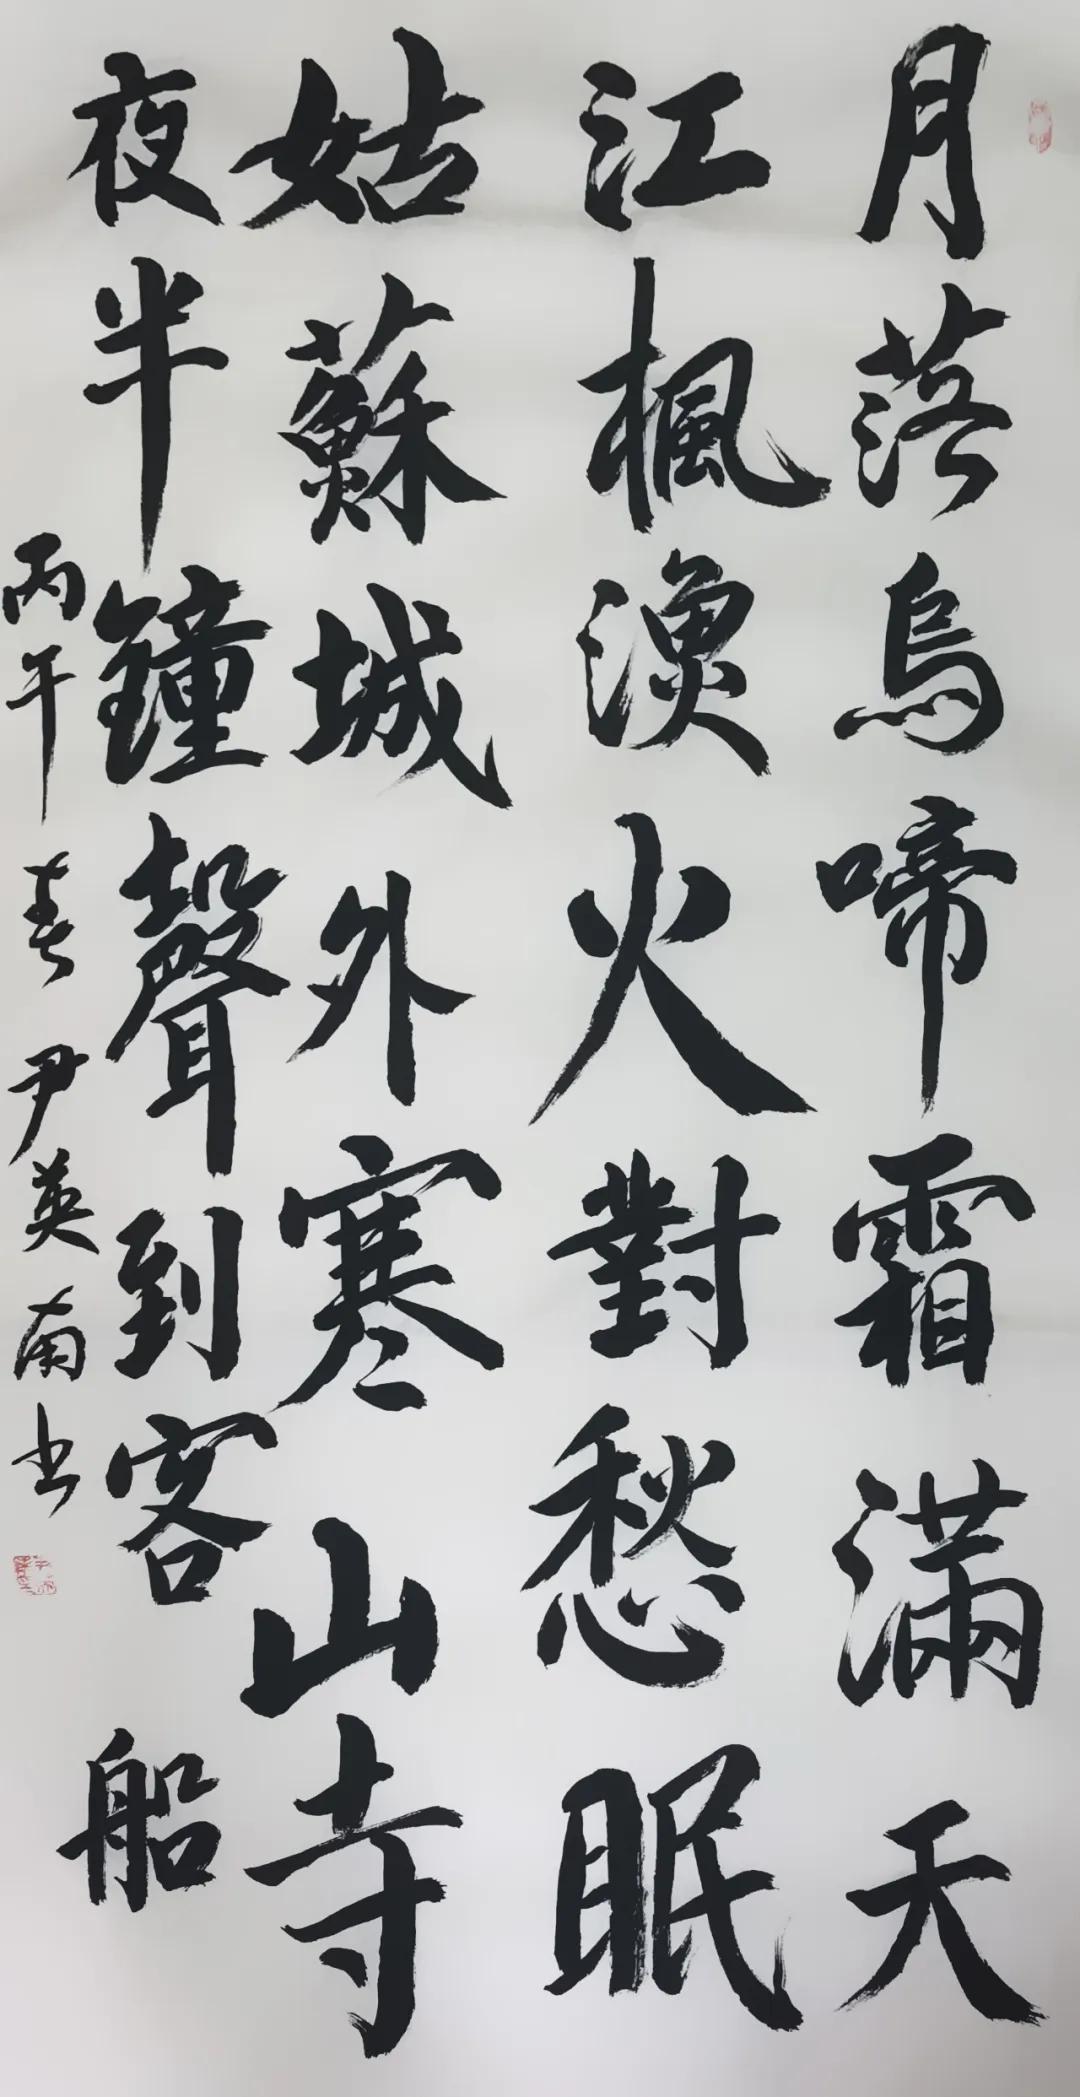 月落烏啼霜滿天
江楓漁火對愁眠
姑蘇城外寒山寺
夜半鐘聲到客船
丙午春尹英南书